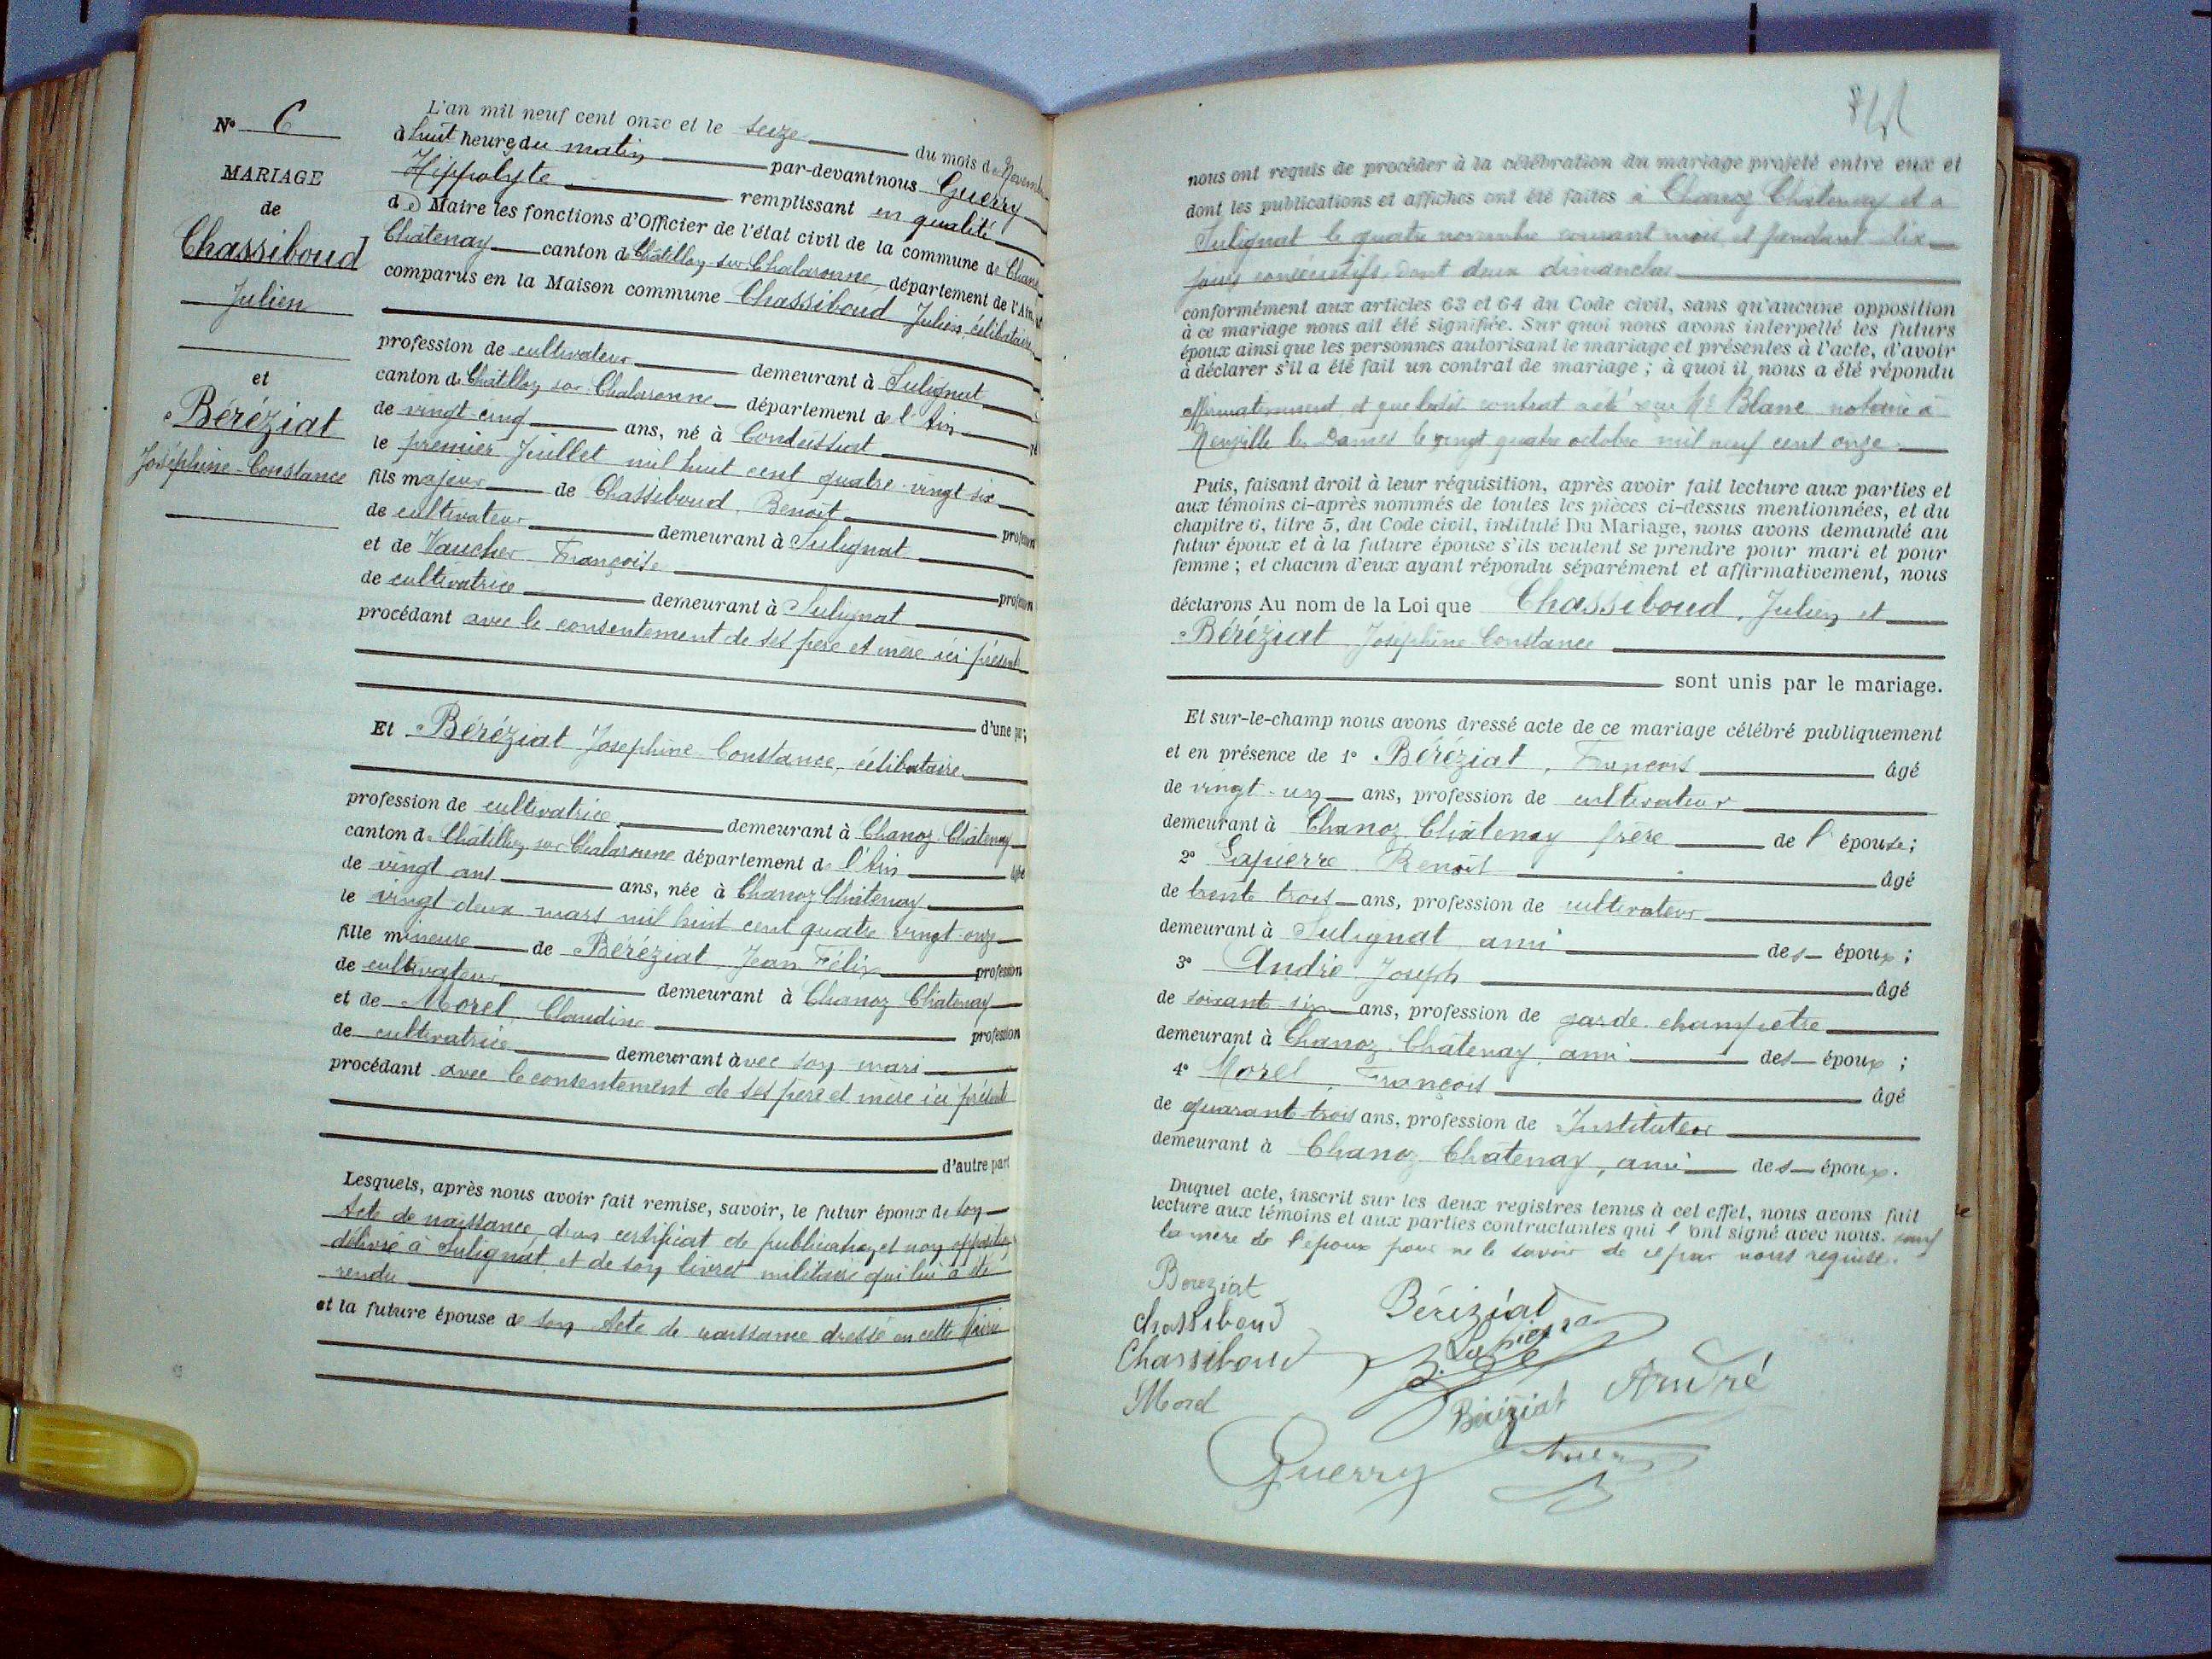 N° 6
MARIAGE
de
Chassiboud
Julien
et
Béréziat
Joséphine-Constance
L'an mil neuf cent onze et le seize du mois de Novembre
à huit heures du matin par-devant nous Guerry
Hippolyte remplissant en qualité
de Maire les fonctions d'Officier de l'état civil de la commune de Chanoz
Châtenay canton de Châtillon sur Chalaronne, département de l'Ain,
comparus en la Maison commune Chassiboud Julien, célibataire
profession de cultivateur demeurant à Sulignat
canton de Châtillon sur Chalaronne département de l'Ain
de vingt-cinq ans, né à Condeissiat
le premier Juillet mil huit cent quatre-vingt six
fils majeur de Chassiboud, Benoît profession
de cultivateur demeurant à Sulignat
et de Vaucher Françoise profession
de cultivatrice demeurant à Sulignat
procédant avec le consentement de ses père et mère ici présents
d'une part;
Et Béréziat Josephine Constance, célibataire
profession de cultivatrice demeurant à Chanoz Châtenay
canton de Châtillon sur Chalaronne département de l'Ain âgée
de vingt ans ans, née à Chanoz Châtenay
le vingt-deux mars mil huit cent quatre vingt-onze
fille mineure de Béréziat Jean Félix profession
de cultivateur demeurant à Chanoz Châtenay
et de Morel Claudine profession
de cultivatrice demeurant avec son mari
procédant avec le consentement de ses père et mère ici présents
d'autre part
Lesquels, après nous avoir fait remise, savoir, le futur époux de son
Acte de naissance, d'un certificat de publication et non opposition
délivré à Sulignat et de son livret militaire qui lui a été
rendu
et la future épouse de son Acte de naissance dressé en cette Mairie
nous ont requis de procéder à la célébration du mariage projeté entre eux et
dont les publications et affiches ont été faites à Chanoz Châtenay et à
Sulignat le quatre novembre courant mois et pendant dix
jours consécutifs dont deux dimanches
conformément aux articles 63 et 64 du Code civil, sans qu'aucune opposition
à ce mariage nous ait été signifiée. Sur quoi nous avons interpellé les futurs
époux ainsi que les personnes autorisant le mariage et présentes à l'acte, d'avoir
à déclarer s'il a été fait un contrat de mariage ; à quoi il nous a été répondu
affirmativement et que ledit contrat a été reçu Me Blanc notaire à
Neuville les Dames le vingt quatre octobre mil neuf cent onze
Puis, faisant droit à leur réquisition, après avoir fait lecture aux parties et
aux témoins ci-après nommés de toutes les pièces ci-dessus mentionnées, et du
chapitre 6, titre 5, du Code civil, intitulé Du Mariage, nous avons demandé au
futur époux et à la future épouse s'ils veulent se prendre pour mari et pour
femme ; et chacun d'eux ayant répondu séparément et affirmativement, nous
déclarons Au nom de la Loi que Chassiboud, Julien et
Béréziat Joséphine Constance
sont unis par le mariage.
Et sur-le-champ nous avons dressé acte de ce mariage célébré publiquement
et en présence de 1° Béréziat, François âgé
de vingt-un ans, profession de cultivateur
demeurant à Chanoz Châtenay frère de l'épouse ;
2° Lapierre Benoît âgé
de trente trois ans, profession de cultivateur
demeurant à Sulignat ami des époux ;
3° André Joseph âgé
de soixant six ans, profession de garde champêtre
demeurant à Chanoz Châtenay, ami des époux ;
4° Morel, François âgé
de quarant-trois ans, profession de Instituteur
demeurant à Chanoz Châtenay, ami des époux.
Duquel acte, inscrit sur les deux registres tenus à cet effet, nous avons fait
lecture aux témoins et aux parties contractantes qui l'ont signé avec nous. sauf
la mère de l'époux pour ne le savoir de ce par nous requise.
Bereziat
Chassiboud
Bériziat
Chassiboud
B. Lapierre
Morel
Béréziat
André
Guerry